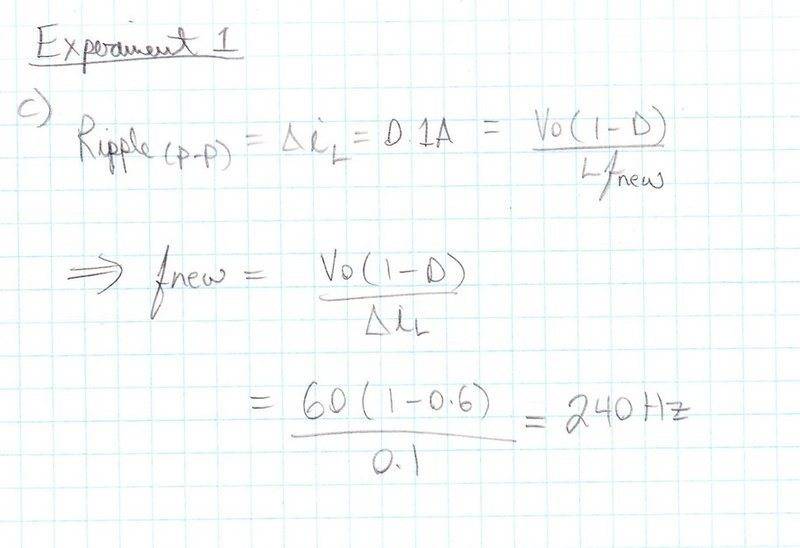 Experiment 1
c)
Ripple(p-p) = Δi_L = 0.1A = Vo(1-D) / L fnew
⇒ fnew = Vo(1-D) / Δi_L
= 60(1-0.6) / 0.1 = 240Hz